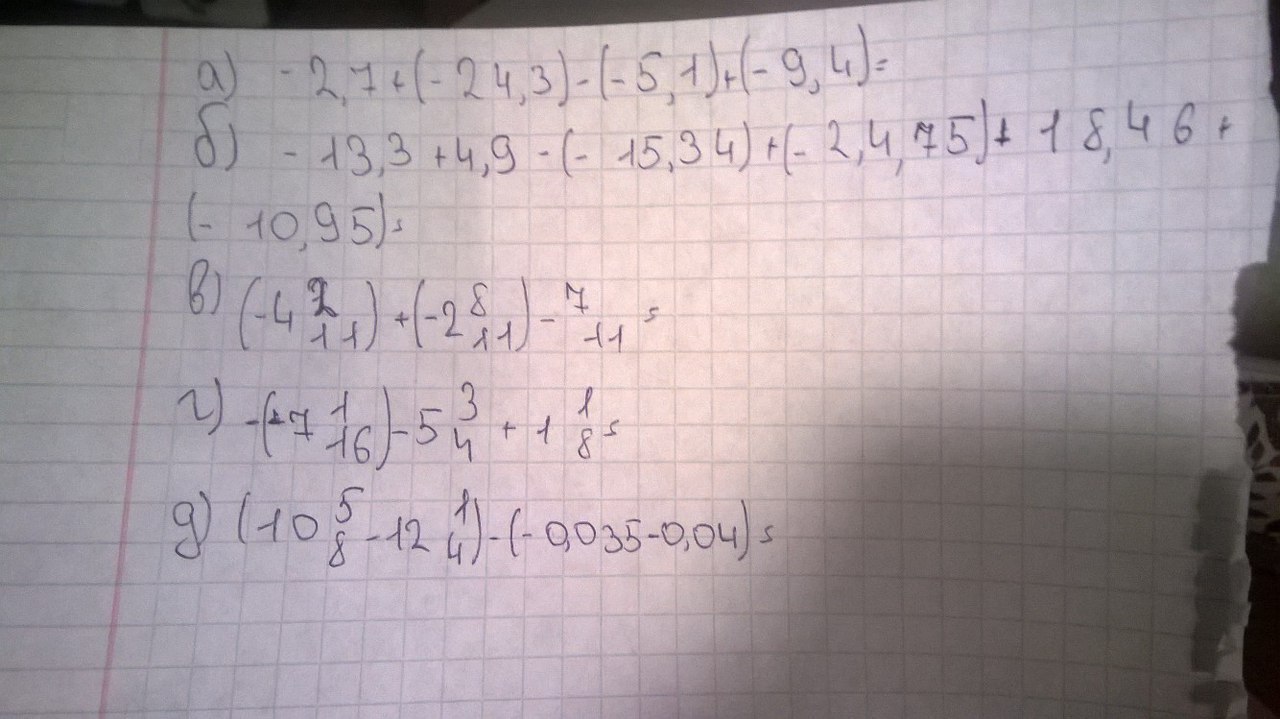 а) -2,7+(-24,3)-(-5,1)+(-9,4)=
б) -13,3+4,9-(-15,34)+(-2,4,75)+18,46+
(-10,95)=
в) (-4 2/11)+(-2 8/11)-7/11=
г) -(-7 1/16)-5 3/4+1 1/8=
д) (10 5/8-12 1/4)-(-0,035-0,04)=